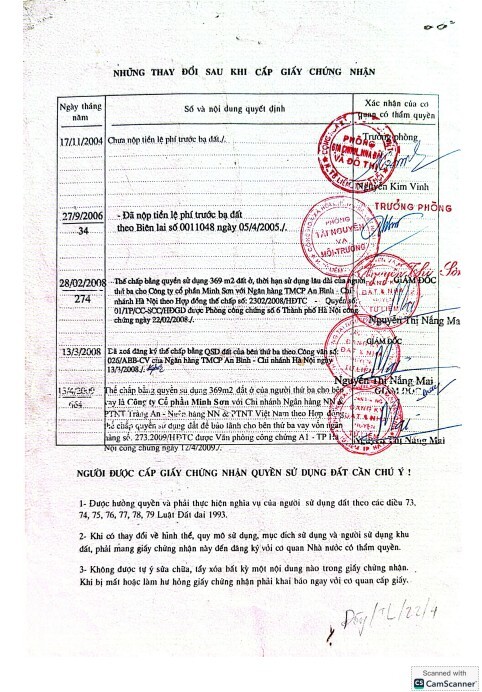 NHỮNG THAY ĐỔI SAU KHI CẤP GIẤY CHỨNG NHẬN
Ngày tháng năm
Số và nội dung quyết định
Xác nhận của cơ quan có thẩm quyền
17/11/2004
Chưa nộp tiền lệ phí trước bạ đất./.
Trưởng phòng
PHÒNG
ĐỊA CHÍNH, NHÀ ĐẤT
VÀ ĐÔ THỊ
Nguyễn Kim Vinh
27/9/2006
34
- Đã nộp tiền lệ phí trước bạ đất
theo Biên lai số 0011048 ngày 05/4/2005./.
TRƯỞNG PHÒNG
PHÒNG
TÀI NGUYÊN
VÀ
MÔI TRƯỜNG
28/02/2008
274
Thế chấp bằng quyền sử dụng 369 m2 đất ở, thời hạn sử dụng lâu dài của người
thứ ba cho Công ty cổ phần Minh Sơn với Ngân hàng TMCP An Bình - Chi
nhánh Hà Nội theo Hợp đồng thế chấp số: 2302/08/HĐTC - Quyển số:
01/TP/CC-SCC/HĐGD được Phòng công chứng số 6 Thành phố Hà Nội công
chứng ngày 22/02/2008./.
GIÁM ĐỐC
Nguyễn Thị Nắng Mai
13/3/2008
Đã xoá đăng ký thế chấp bằng QSD đất của bên thứ ba theo Công văn số:
026/ABB-CV của Ngân hàng TMCP An Bình - Chi nhánh Hà Nội ngày
13/3/2008./.
GIÁM ĐỐC
Nguyễn Thị Nắng Mai
Thế chấp bằng quyền sử dụng 369m2 đất ở của người thứ ba cho bên
vay là Công ty Cổ phần Minh Sơn với Chi nhánh Ngân hàng NN &
PTNT Tràng An - Ngân hàng NN & PTNT Việt Nam theo Hợp đồng
thế chấp quyền sử dụng đất để bảo lãnh cho bên thứ ba vay vốn ngân
hàng số. 273.2009/HĐTC được Văn phòng công chứng A1 - TP Hà
Nội công chứng ngày 12/4/2009./.
GIÁM ĐỐC
Nguyễn Thị Nắng Mai
NGƯỜI ĐƯỢC CẤP GIẤY CHỨNG NHẬN QUYỀN SỬ DỤNG ĐẤT CẦN CHÚ Ý !
1- Được hưởng quyền và phải thực hiện nghĩa vụ của người sử dụng đất theo các điều 73,
74, 75, 76, 77, 78, 79 Luật Đất đai 1993.
2- Khi có thay đổi về hình thể, quy mô sử dụng, mục đích sử dụng và người sử dụng khu
đất, phải mang giấy chứng nhận này đến đăng ký với cơ quan Nhà nước có thẩm quyền.
3- Không được tự ý sửa chữa, tẩy xóa bất kỳ một nội dung nào trong giấy chứng nhận.
Khi bị mất hoặc làm hư hỏng giấy chứng nhận phải khai báo ngay với cơ quan cấp giấy.
Scanned with
CS CamScanner